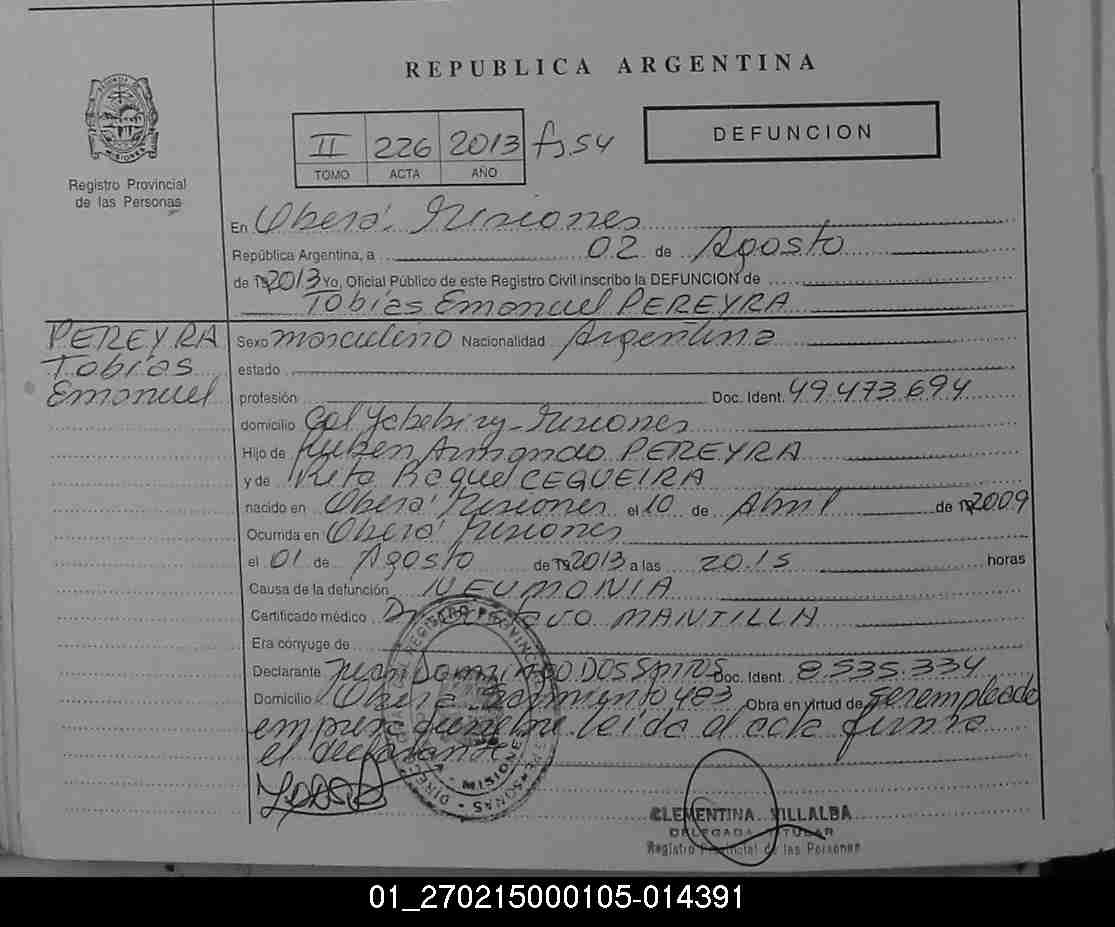 REPUBLICA ARGENTINA
II 226 2013 fs 54
TOMO ACTA AÑO
DEFUNCION
Registro Provincial
de las Personas
En Oberá, Misiones
República Argentina, a 02 de Agosto
de 2013 Yo, Oficial Público de este Registro Civil inscribo la DEFUNCION de
Tobías Emanuel PEREYRA
PEREYRA
Tobías
Emanuel
Sexo masculino Nacionalidad Argentina
estado
profesión Doc. Ident. 49.473.694
domicilio Col Yabebiry - Misiones
Hijo de Ruben Armando PEREYRA
y de Rita Raquel CEQUEIRA
nacido en Oberá Misiones el 10 de Abril de 2009
Ocurrida en Oberá Misiones
el 01 de Agosto de 2013 a las 20.15 horas
Causa de la defunción NEUMONIA
Certificado médico Dr. MANTILLA
Era cónyuge de
Declarante Juan DOS SANTOS Doc. Ident. 8.535.334
Domicilio Oberá Sarmiento 483 Obra en virtud de ser empleado
empresa funebre leída el acta firma
el declarante
REGISTRO PROVINCIAL PERSONAS - DIREC - MISIONES
CLEMENTINA VILLALBA
DELEGADA TITULAR
Registro Provincial de las Personas
01_270215000105-014391